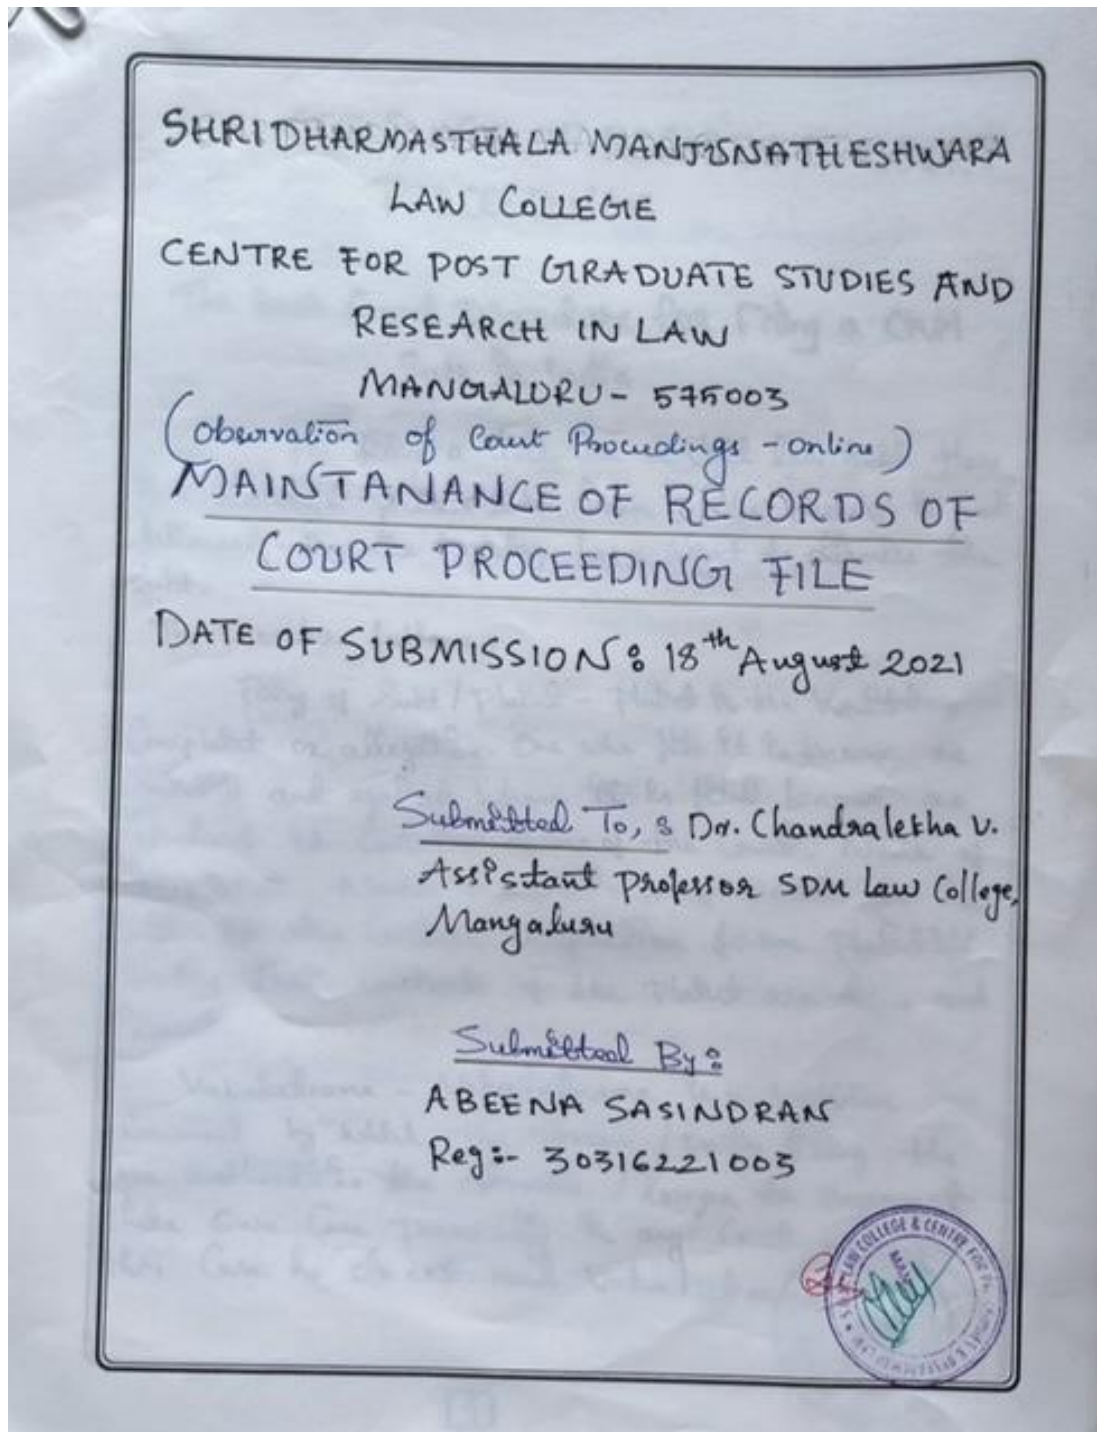 SHRI DHARMASTHALA MANJUNATHESHWARA
LAW COLLEGE
CENTRE FOR POST GRADUATE STUDIES AND
RESEARCH IN LAW
MANGALURU - 575003
(Observation of Court Proceedings - online)
MAINTANANCE OF RECORDS OF
COURT PROCEEDING FILE
DATE OF SUBMISSION: 18th August 2021
Submitted To, : Dr. Chandraletha V.
Assistant Professor SDM Law College,
Mangaluru
Submitted By:
ABEENA SASINDRAN
Reg:- 30316221003
LAW COLLEGE & CENTRE FOR